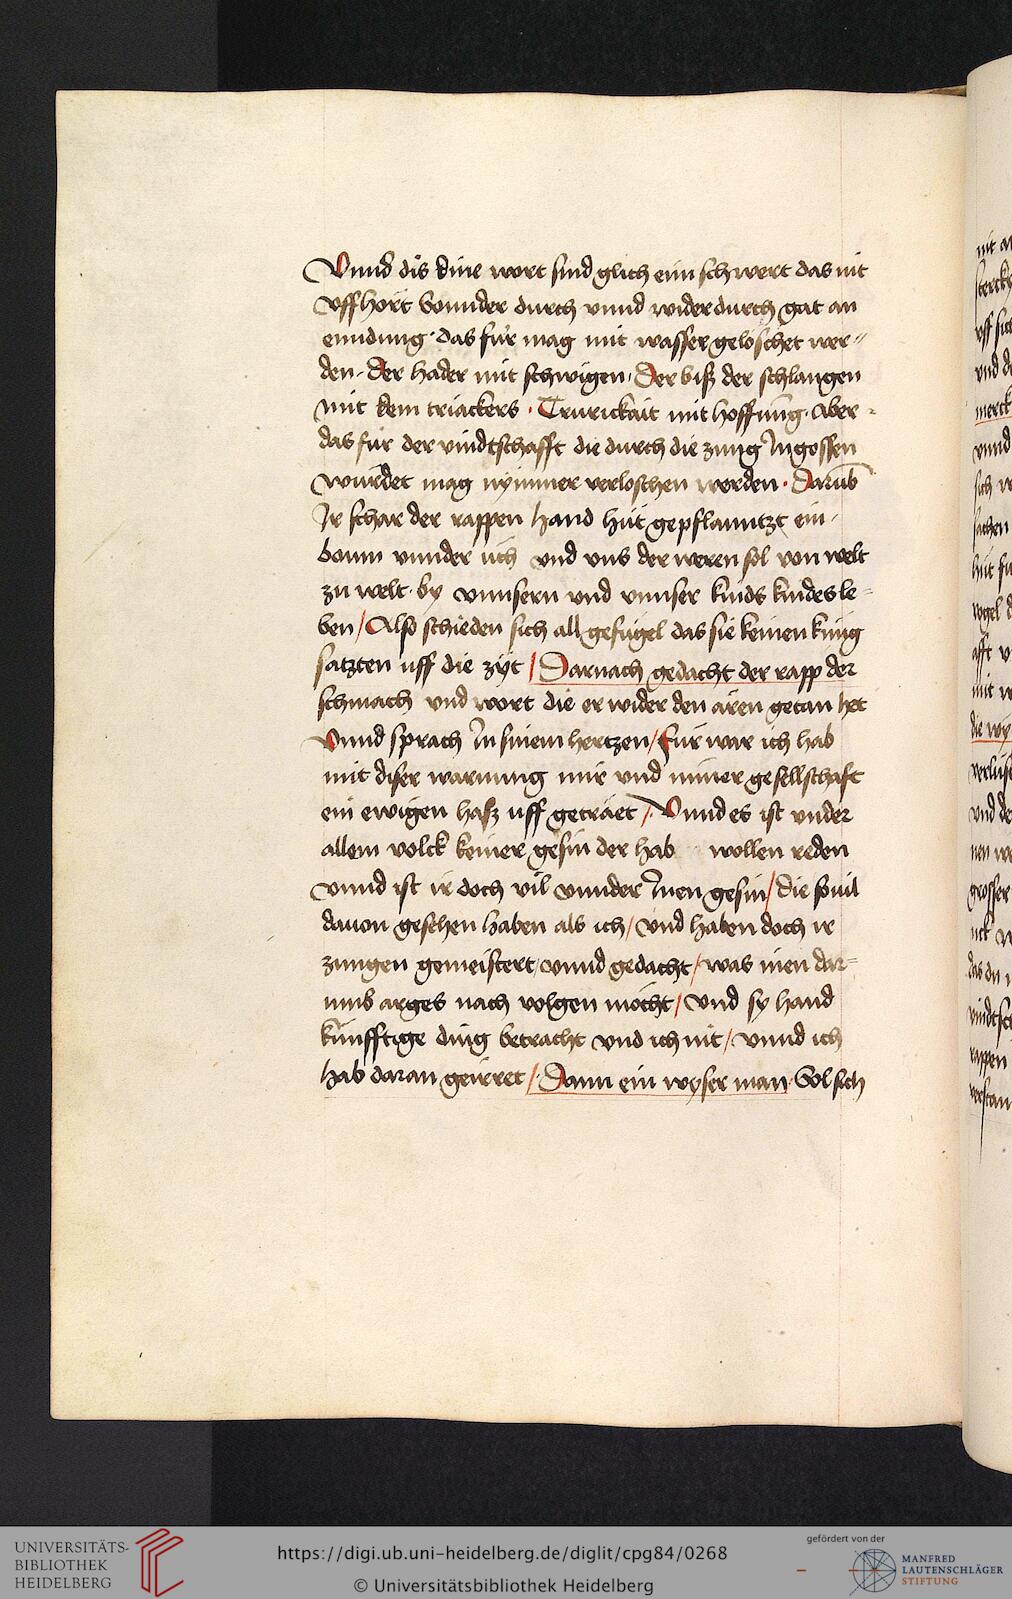 Vnnd dis dine wort sind glich einn schwert das nit
vffhort Sonnder durch vnnd widerdurch gat an
enndung · das für mag mit wasser geloschet wer-
den · Der hader mit schwigen · Der biß der schlangen
mit dem triackers · Trurickait mit hoffnung · Aber
das für der vindtschafft die durch die zung Ingossen
würdet mag nymmer verloschen werden · Darūb
Ir schar der rappen hand hüt gepflanntzt ein
bonm vnnder üch vnd vns der weren sol von welt
zu welt · by vnnsern vnd vnnser kinds kindes le-
ben / Also schieden sich all gefügel das sie keinen küng
satzten uff die zÿt / Darnach gedacht der rapp der
schmach vnd wort die er wider den aren getan het
Vnnd sprach In sinem hertzen / Für war ich hab
mit diser warnung mir vnd miner gesellschaft
ein ewigen hasz uff getraet / Vnnd es ist vnder
allem volck keiner gesin der hab wollen reden
vnnd ist ir doch vil vnnder Inen gesin / die souil
dauon gesehen haben als ich / vnd haben doch ir
zungen gemeistert / vnnd gedacht / was inen dar-
umb arges nach volgen möcht / vnd sy hand
künfftige ding betracht vnd ich nit / vnnd ich
hab daran geirret / Dann ein wyser man Sol sich
nit
vff
vnd
merck
vnnd
sich
sachen
hüt
vogel
mit
die
vnd
grosser
rappen
UNIVERSITÄTS-
BIBLIOTHEK
HEIDELBERG
https://digi.ub.uni-heidelberg.de/diglit/cpg84/0268
© Universitätsbibliothek Heidelberg
gefördert von der
MANFRED
LAUTENSCHLÄGER
STIFTUNG